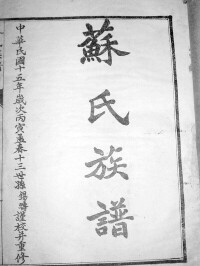 蘇氏族譜
中華民國十五年歲次丙寅孟春十三世孫錫㬢謹校并重修